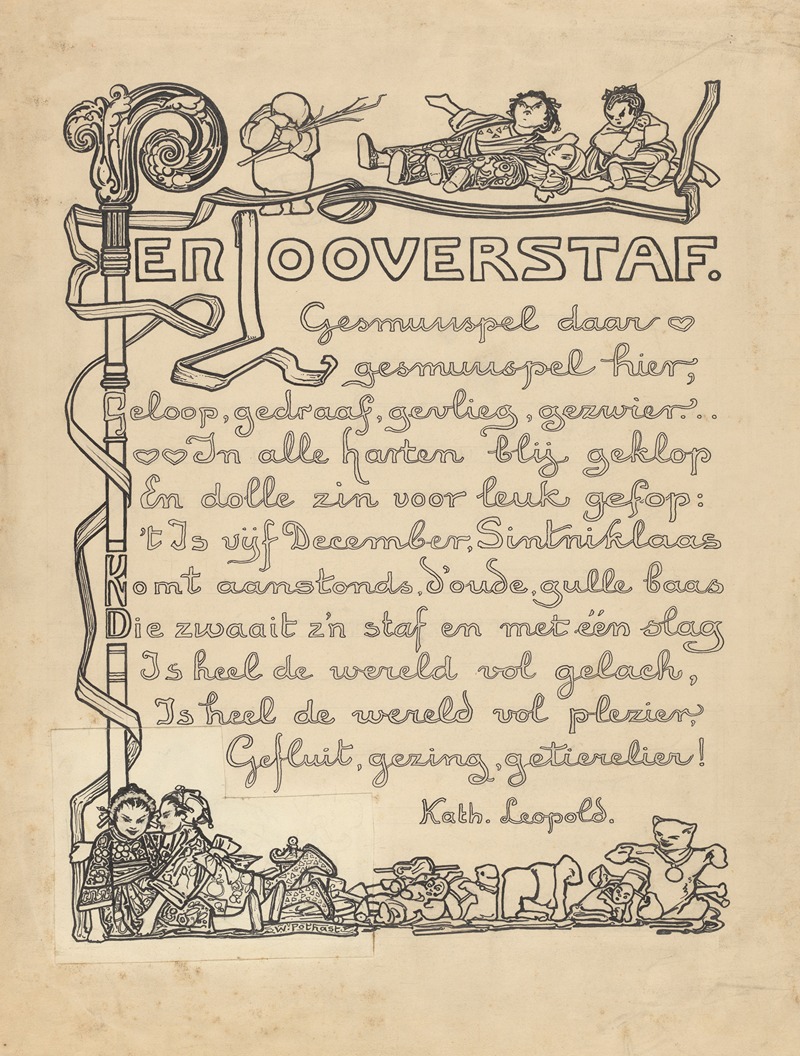 EEN TOOVERSTAF.
Gesmuispel daar
gesmuispel hier,
Geloop, gedraaf, gevlieg, gezwier...
In alle harten blij geklop
En dolle zin voor leuk gefop:
't Is vijf December, Sintniklaas
Komt aanstonds, d'oude, gulle baas
Die zwaait z'n staf en met één slag
Is heel de wereld vol gelach,
Is heel de wereld vol plezier,
Gefluit, gezing, getierelier!
Kath. Leopold.
W. Pothast.